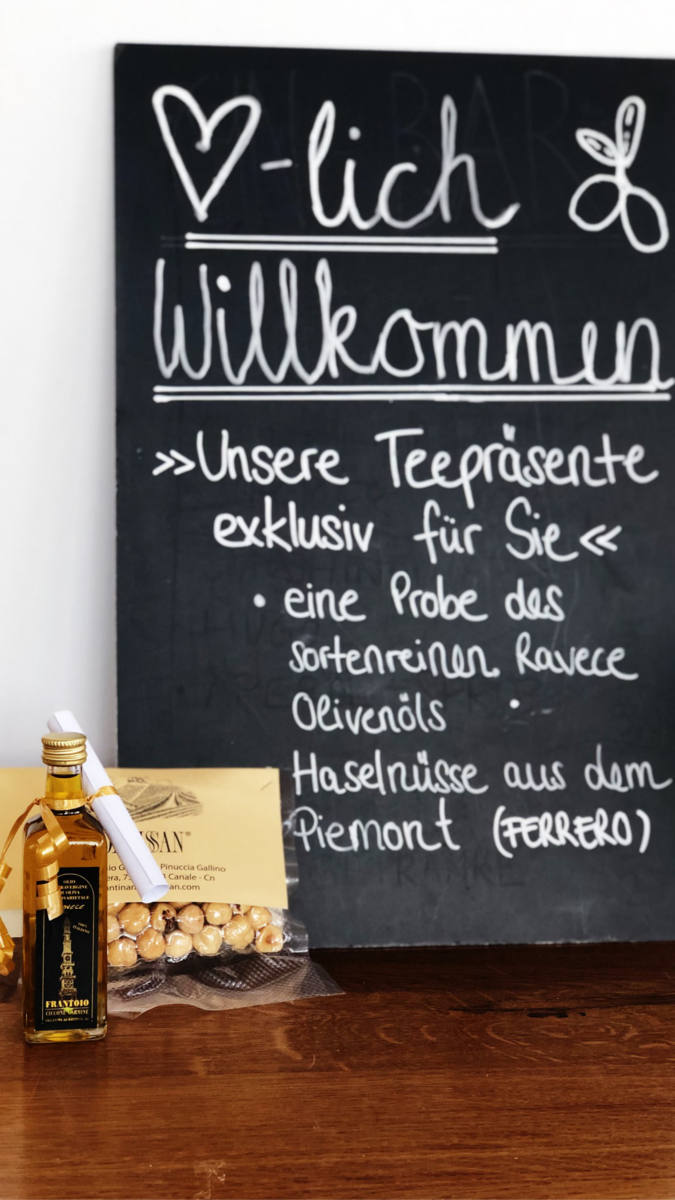 ♡-lich
Willkommen
»Unsere Teepräsente
exklusiv für Sie«
• eine Probe des
sortenreinen Ravece
Olivenöls •
Haselnüsse aus dem
Piemont (FERRERO)
SAN®
Pinuccia Gallino
Canale - Cn
san.com
OLIO
EXTRAVERGINE
DI OLIVA
MONOVARIETALE
FRANTOIO